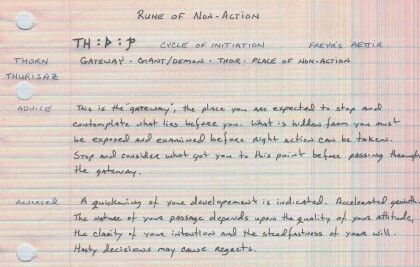 Rune of Non-Action
TH : Þ : þ CYCLE OF INITIATION FREYR'S AETTIR
THORN GATEWAY · GIANT/DEMON · THOR · PLACE OF NON-ACTION
THURISAZ
ADVICE This is the "gateway", the place you are expected to stop and
contemplate what lies before you. What is hidden from you must
be exposed and examined before right action can be taken.
Stop and consider what got you to this point before passing through
the gateway.
REVERSED A quickening of your developement is indicated. Accelerated growth.
The nature of your passage depends upon the quality of your attitude,
the clarity of your intention and the steadfastness of your will.
Hasty decisions may cause regrets.